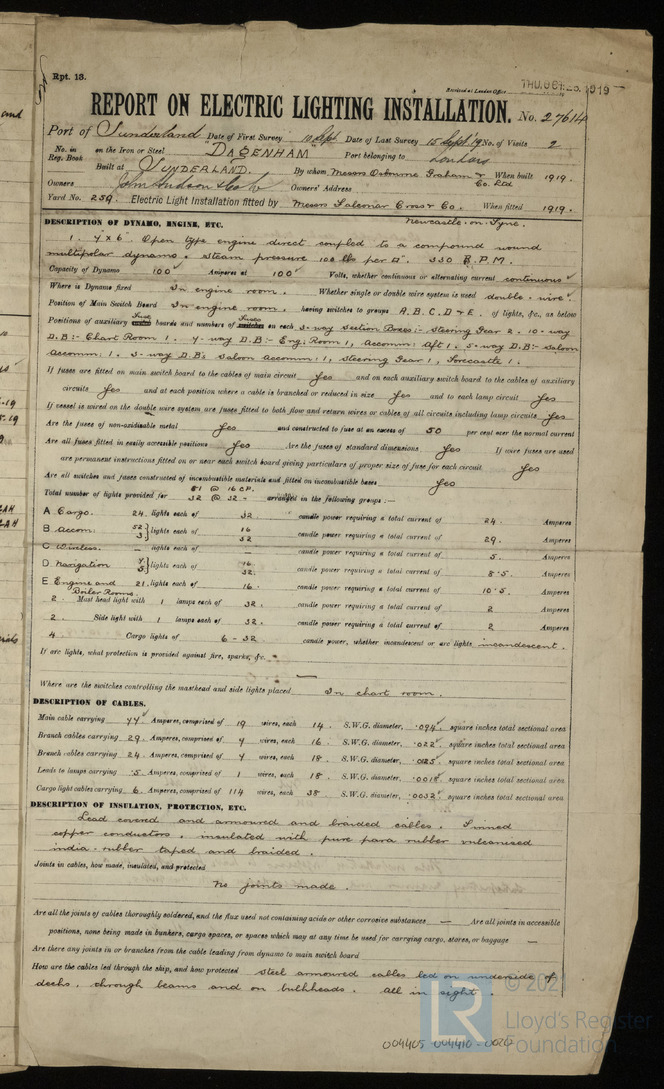 Rpt. 13.
Received at London Office THU. OCT. 23. 1919
REPORT ON ELECTRIC LIGHTING INSTALLATION. No. 27614
Port of Sunderland Date of First Survey 10 Sept Date of Last Survey 15 Sept '19 No. of Visits 2
No. in Reg. Book on the Iron or Steel "DAGENHAM" Port belonging to London
Built at SUNDERLAND. By whom Messrs Osbourne Graham & Co. Ltd When built 1919.
Owners John Hudson & Co Owners' Address
Yard No. 259. Electric Light Installation fitted by Messrs Falconar Cross & Co. When fitted 1919.
Newcastle-on-Tyne.
DESCRIPTION OF DYNAMO, ENGINE, ETC.
1. 7" x 6" Open type engine direct coupled to a compound wound
multipolar dynamo. Steam pressure 100 lbs per □". 330 R.P.M.
Capacity of Dynamo 100 Amperes at 100 Volts, whether continuous or alternating current continuous
Where is Dynamo fixed In engine room. Whether single or double wire system is used double-wire
Position of Main Switch Board In engine room, having switches to groups A, B, C, D & E. of lights, &c., as below
Positions of auxiliary Fuse boards and numbers of Fuses on each 3-way Section Boxes:- Steering Gear 2. 10-way
D.B:- Chart Room 1. 7-way D.B:- Eng. Room 1, Accomm: Aft 1. 5-way D.B:- Saloon
Accomm: 1. 3-way D.B's Saloon Accomm: 1, Steering Gear 1, Forecastle 1.
If fuses are fitted on main switch board to the cables of main circuit Yes and on each auxiliary switch board to the cables of auxiliary
circuits Yes and at each position where a cable is branched or reduced in size Yes and to each lamp circuit Yes
If vessel is wired on the double wire system are fuses fitted to both flow and return wires or cables of all circuits including lamp circuits Yes
Are the fuses of non-oxidizable metal Yes and constructed to fuse at an excess of 50 per cent over the normal current
Are all fuses fitted in easily accessible positions Yes Are the fuses of standard dimensions Yes If wire fuses are used
are permanent instructions fitted on or near each switch board giving particulars of proper size of fuse for each circuit Yes
Are all switches and fuses constructed of incombustible materials and fitted on incombustible bases Yes
81 @ 16 CP.
Total number of lights provided for 32 @ 32 - arranged in the following groups :—
A Cargo. 24. lights each of 32. candle power requiring a total current of 24. Amperes
B. Accom: 52 lights each of 16 candle power requiring a total current of 29. Amperes
3 32
C Wireless. - lights each of - candle power requiring a total current of 5. Amperes
D. Navigation 7 lights each of 16. candle power requiring a total current of 8.5. Amperes
5 32.
E Engine and Boiler Rooms. 21. lights each of 16. candle power requiring a total current of 10.5. Amperes
2. Mast head light with 1 lamps each of 32. candle power requiring a total current of 2 Amperes
2. Side light with 1 lamps each of 32. candle power requiring a total current of 2 Amperes
4 Cargo lights of 6 - 32 candle power, whether incandescent or arc lights incandescent.
If arc lights, what protection is provided against fire, sparks, &c.
—
Where are the switches controlling the masthead and side lights placed In chart room.
DESCRIPTION OF CABLES.
Main cable carrying 77 Amperes, comprised of 19 wires, each 14. S.W.G. diameter, .094 square inches total sectional area
Branch cables carrying 29. Amperes, comprised of 7 wires, each 16. S.W.G. diameter, .022 square inches total sectional area
Branch cables carrying 24. Amperes, comprised of 7 wires, each 18. S.W.G. diameter, square inches total sectional area
Leads to lamps carrying .5 Amperes, comprised of 1 wires, each 18. S.W.G. diameter, .0018 square inches total sectional area
Cargo light cables carrying 6. Amperes, comprised of 114 wires, each 38. S.W.G. diameter, .0032 square inches total sectional area
DESCRIPTION OF INSULATION, PROTECTION, ETC.
Lead covered and armoured and braided cables. Tinned
copper conductors, insulated with pure para rubber vulcanised
india-rubber taped and braided.
Joints in cables, how made, insulated, and protected
No joints made.
Are all the joints of cables thoroughly soldered, and the flux used not containing acids or other corrosive substances — Are all joints in accessible
positions, none being made in bunkers, cargo spaces, or spaces which may at any time be used for carrying cargo, stores, or baggage —
Are there any joints in or branches from the cable leading from dynamo to main switch board
How are the cables led through the ship, and how protected Steel armoured cables led on underside of
decks, through beams and on bulkheads. All in sight.
© 2021
LR Lloyd's Register
Foundation
004405-004410-0026